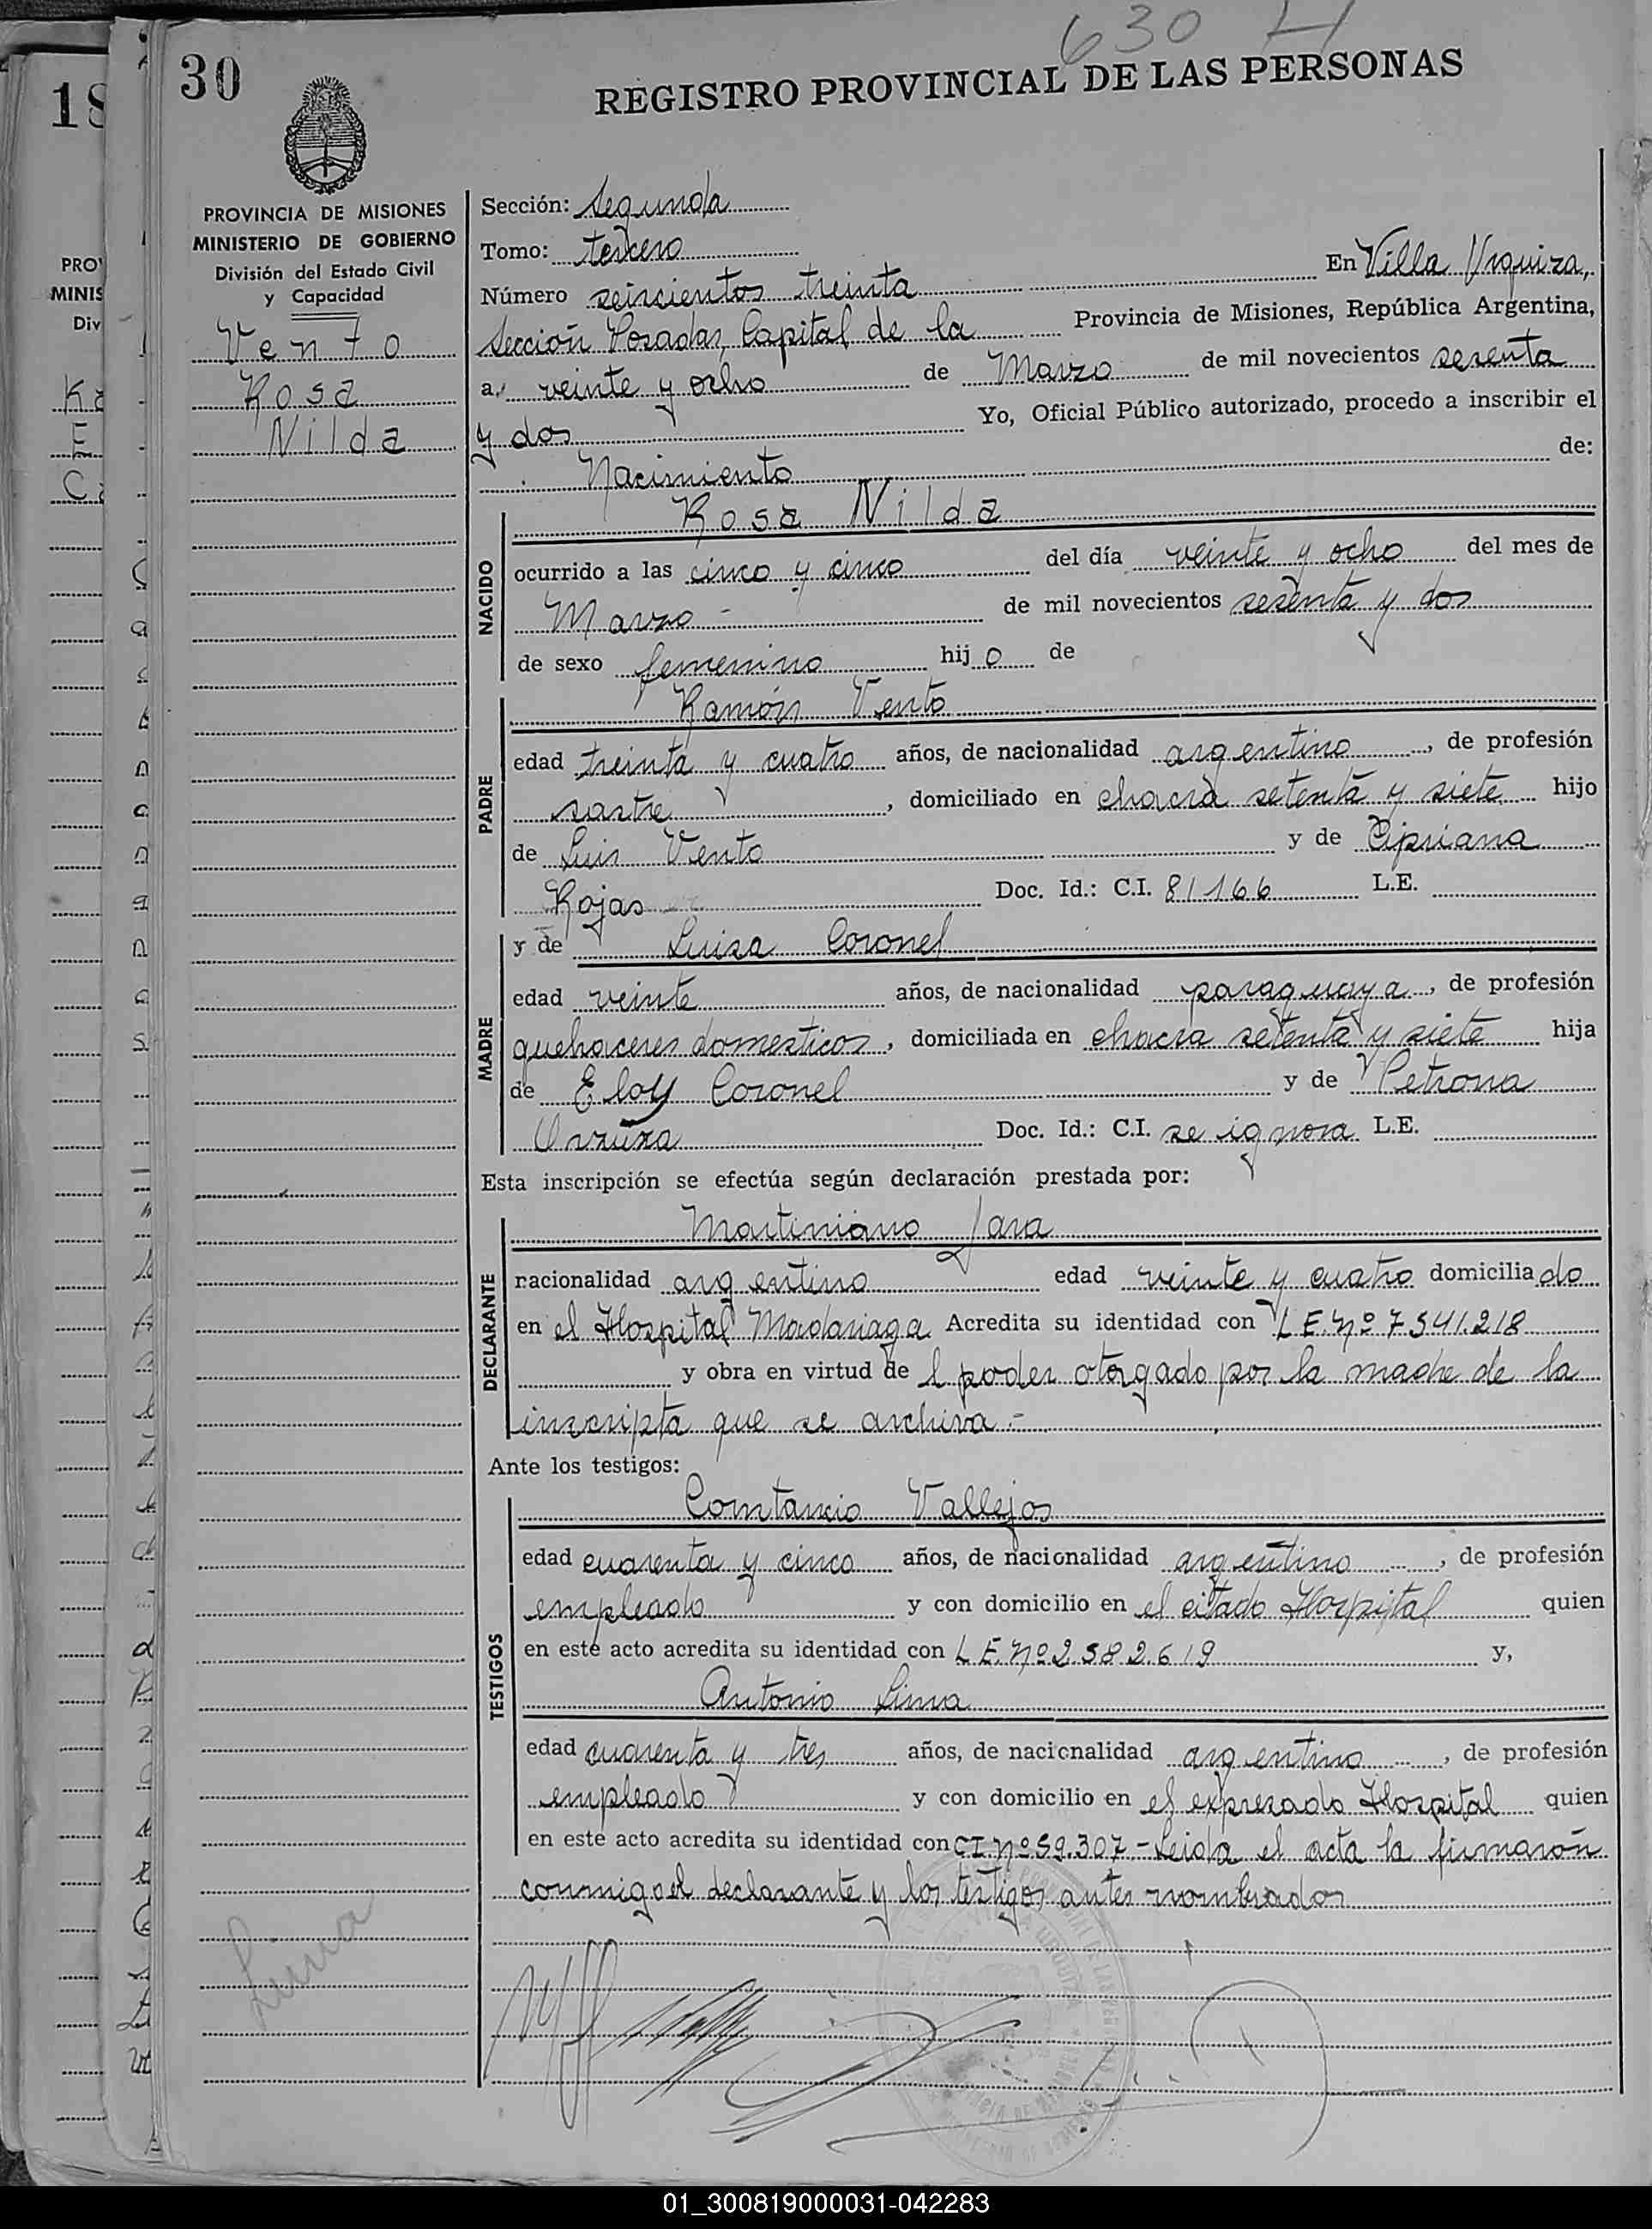 630 H
30
REGISTRO PROVINCIAL DE LAS PERSONAS
PROVINCIA DE MISIONES
MINISTERIO DE GOBIERNO
División del Estado Civil
y Capacidad
Vento
Rosa
Nilda
Sección: Segunda
Tomo: tercero
En Villa Urquiza,
Número seiscientos treinta
Sección Posadas, Capital de la Provincia de Misiones, República Argentina,
a veinte y ocho de Marzo de mil novecientos sesenta
y dos Yo, Oficial Público autorizado, procedo a inscribir el
Nacimiento de:
NACIDO
Rosa Nilda
ocurrido a las cinco y cinco del día veinte y ocho del mes de
Marzo - de mil novecientos sesenta y dos
de sexo femenino hijo de
PADRE
Ramón Vento
edad treinta y cuatro años, de nacionalidad argentino, de profesión
sastre, domiciliado en chacra setenta y siete hijo
de Luis Vento y de Cipriana
Rojas Doc. Id.: C.I. 81166 L.E.
MADRE
y de Luisa Coronel
edad veinte años, de nacionalidad paraguaya, de profesión
quehaceres domesticos, domiciliada en chacra setenta y siete hija
de Eloy Coronel y de Petrona
Doc. Id.: C.I. se ignora L.E.
Esta inscripción se efectúa según declaración prestada por:
DECLARANTE
Martiniano Jara
nacionalidad argentino edad veinte y cuatro domiciliado
en el Hospital Madariaga Acredita su identidad con L.E. Nº 7541.218
y obra en virtud del poder otorgado por la madre de la
inscripta que se archiva.-
Ante los testigos:
TESTIGOS
Constancio Vallejos
edad cuarenta y cinco años, de nacionalidad argentino, de profesión
empleado y con domicilio en el citado Hospital quien
en este acto acredita su identidad con L.E. Nº 2.582.619 y,
Antonio Lima
edad cuarenta y tres años, de nacionalidad argentino, de profesión
empleado y con domicilio en el expresado Hospital quien
en este acto acredita su identidad con C.I. Nº 59.307 - Leida el acta la firmarón
conmigo el declarante y los testigos antes nombrados
Lima
01_300819000031-042283